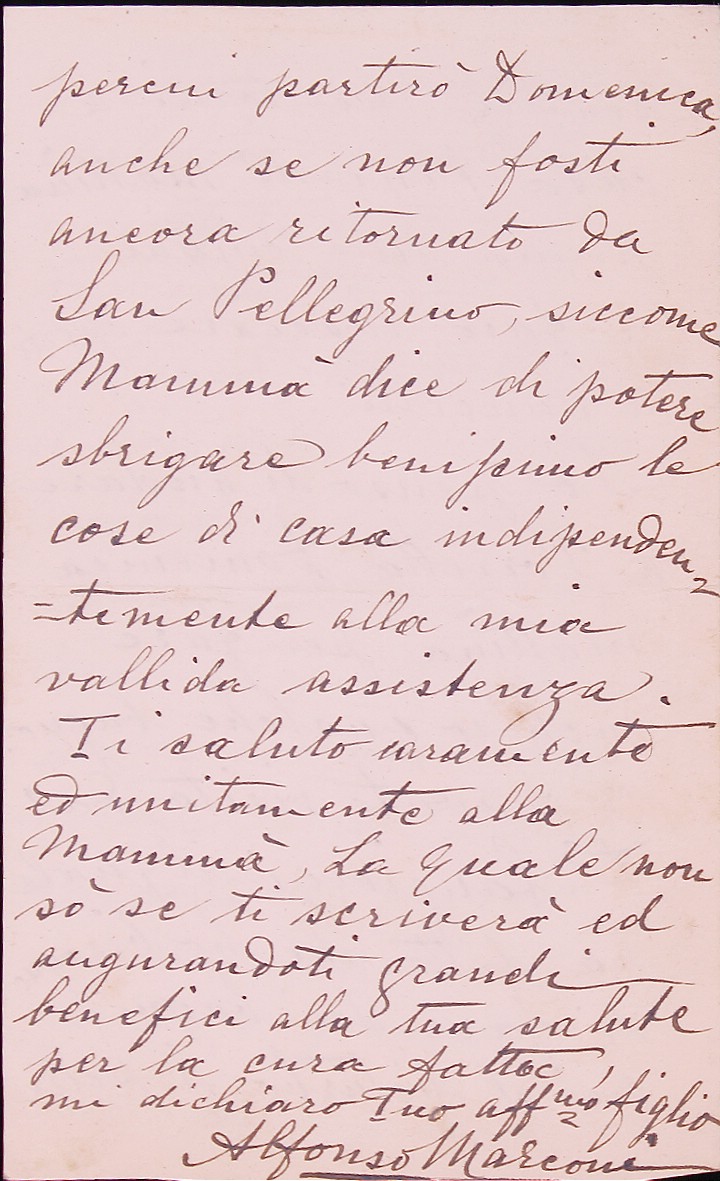 percui partirò Domenica,
anche se non fosti
ancora ritornato da
San Pellegrino, siccome
Mammà dice di potere
sbrigare benissimo le
cose di casa indipenden
=temente alla mia
vallida assistenza.
Ti saluto caramente
ed unitamente alla
Mammà, La quale non
sò se ti scriverà ed
augurandoti grandi
benefici alla tua salute
per la cura fatta,
mi dichiaro Tuo affmo figlio
Alfonso Marconi